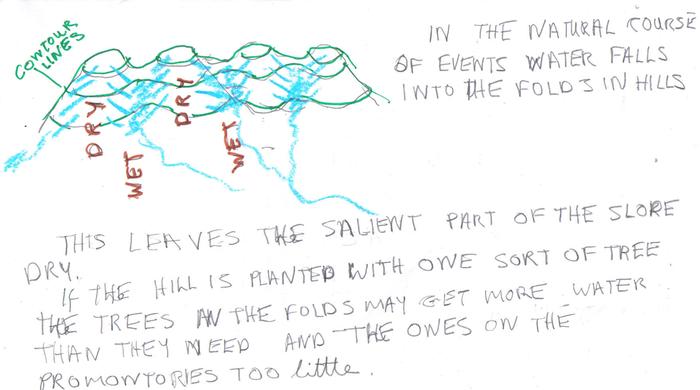 CONTOUR
LINES
DRY
DRY
WET
WET
IN THE NATURAL COURSE
OF EVENTS WATER FALLS
INTO THE FOLDS IN HILLS
THIS LEAVES THE SALIENT PART OF THE SLOPE
DRY.
IF THE HILL IS PLANTED WITH ONE SORT OF TREE
THE TREES IN THE FOLDS MAY GET MORE WATER
THAN THEY NEED AND THE ONES ON THE
PROMONTORIES TOO little.